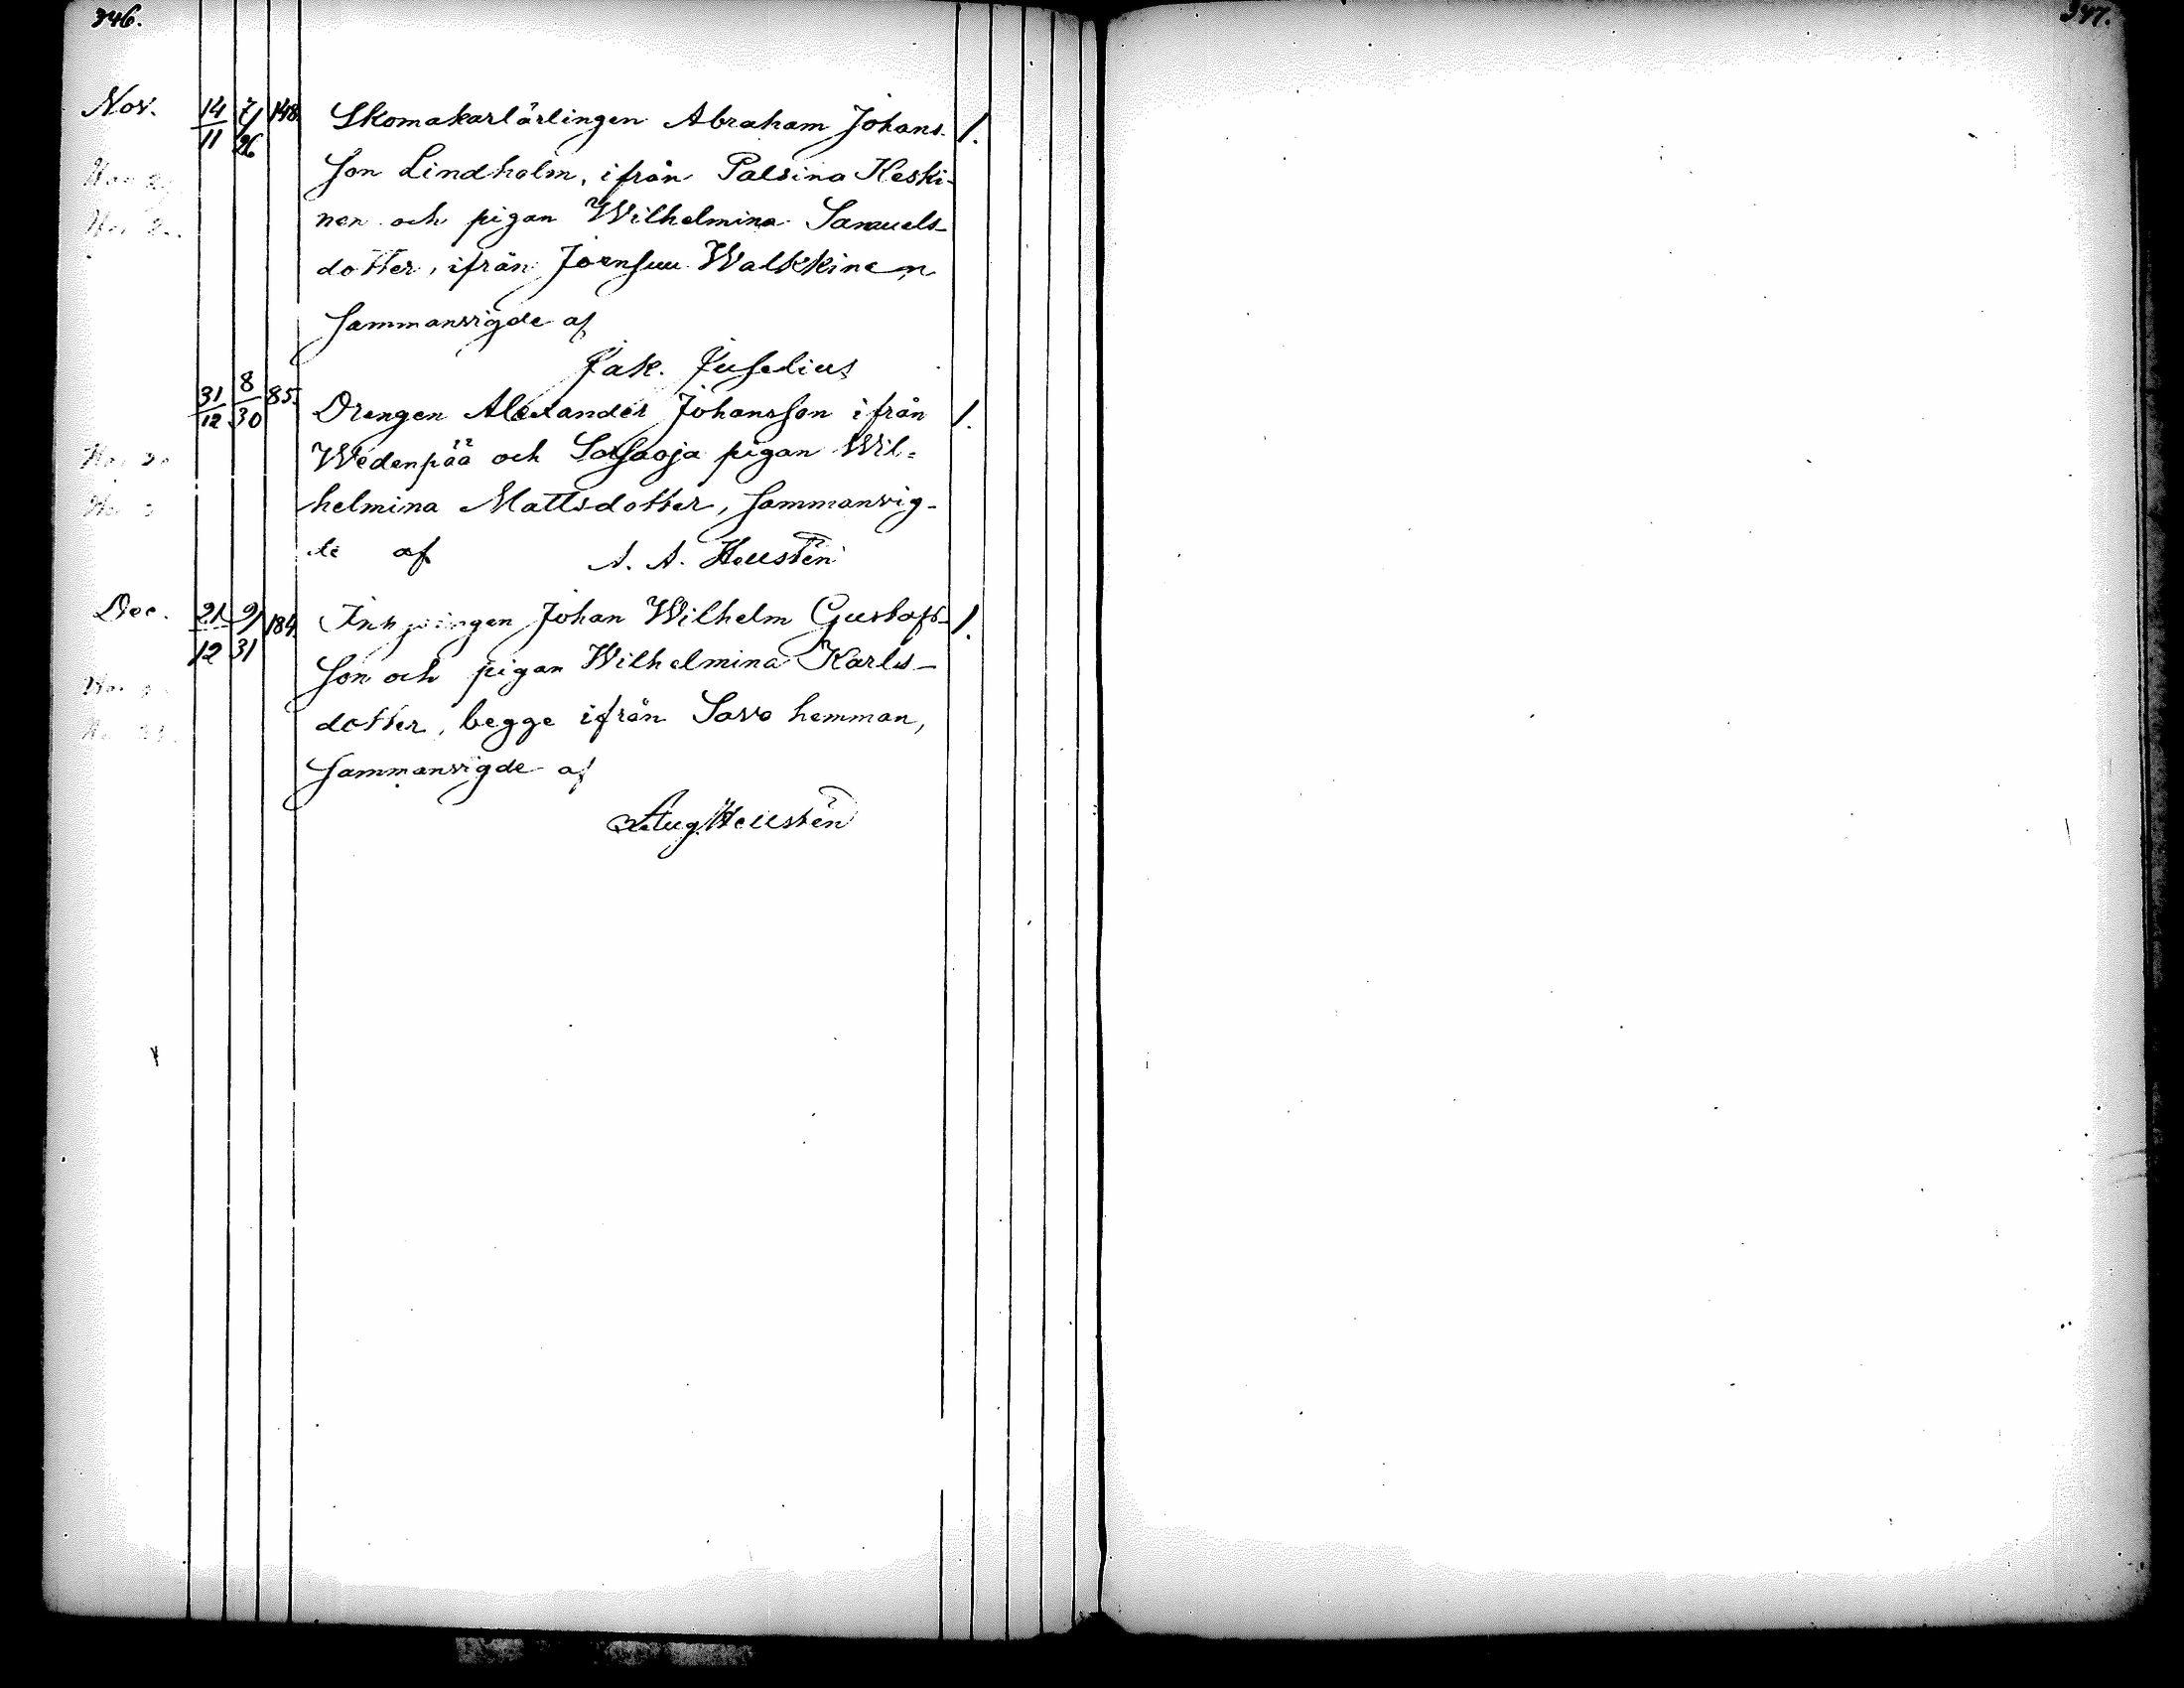 346.
347.
Nov. 14/11 7/26 148. Skomakarlärlingen Abraham Johans- 1.
son Lindholm, ifrån Palsina Keski-
nen och pigan Wilhelmina Samuels-
dotter, ifrån Joensuu Walkkinen
sammanvigde af
Jak. Juselius
31/12 8/30 85. Drengen Alexander Johansson ifrån 1.
Wedenpää och pigan Wil-
helmina Mattsdotter, sammanvig-
de af A. A. Heusten
Dec. 21/12 9/31 184. Johan Wilhelm Gustafs- 1.
son och pigan Wilhelmina Karls-
dotter, begge ifrån Savo hemman,
sammanvigde af
Aug. Heusten